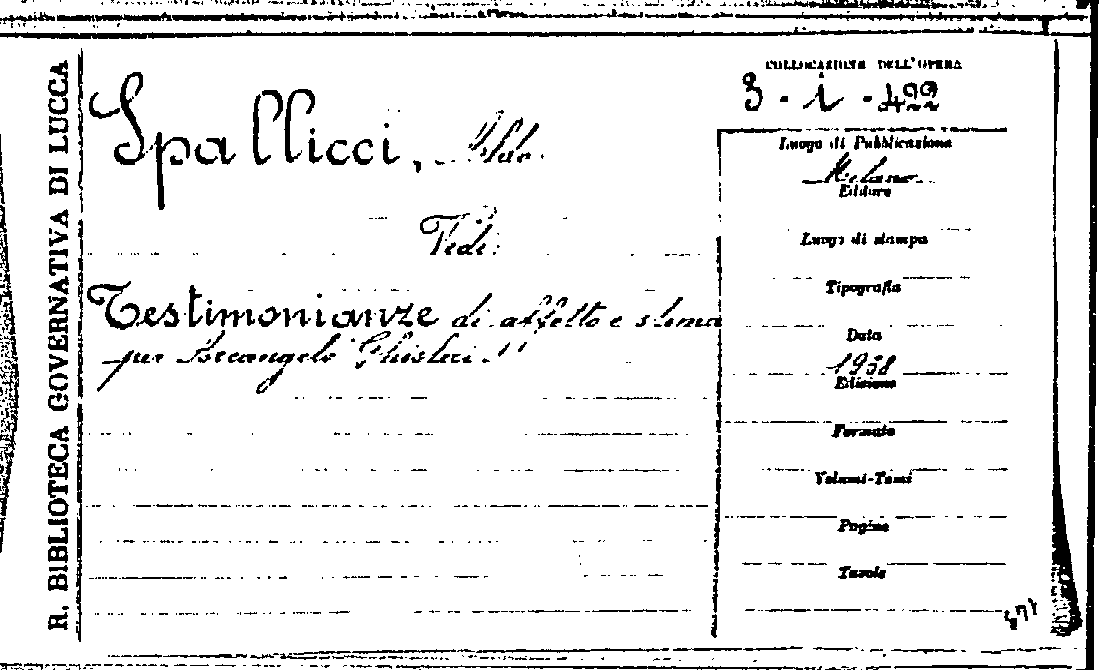 R. BIBLIOTECA GOVERNATIVA DI LUCCA
COLLOCAZIONE DELL'OPERA
3 - i - 422
Spallicci, Aldo.
Vedi:
Testimonianze di affetto e stima
per Arcangelo Ghisleri.
Luogo di Pubblicazione
Milano
Editore
Luogo di stampa
Tipografia
Data
1938
Edizione
Formato
Volumi-Tomi
Pagine
Tavole